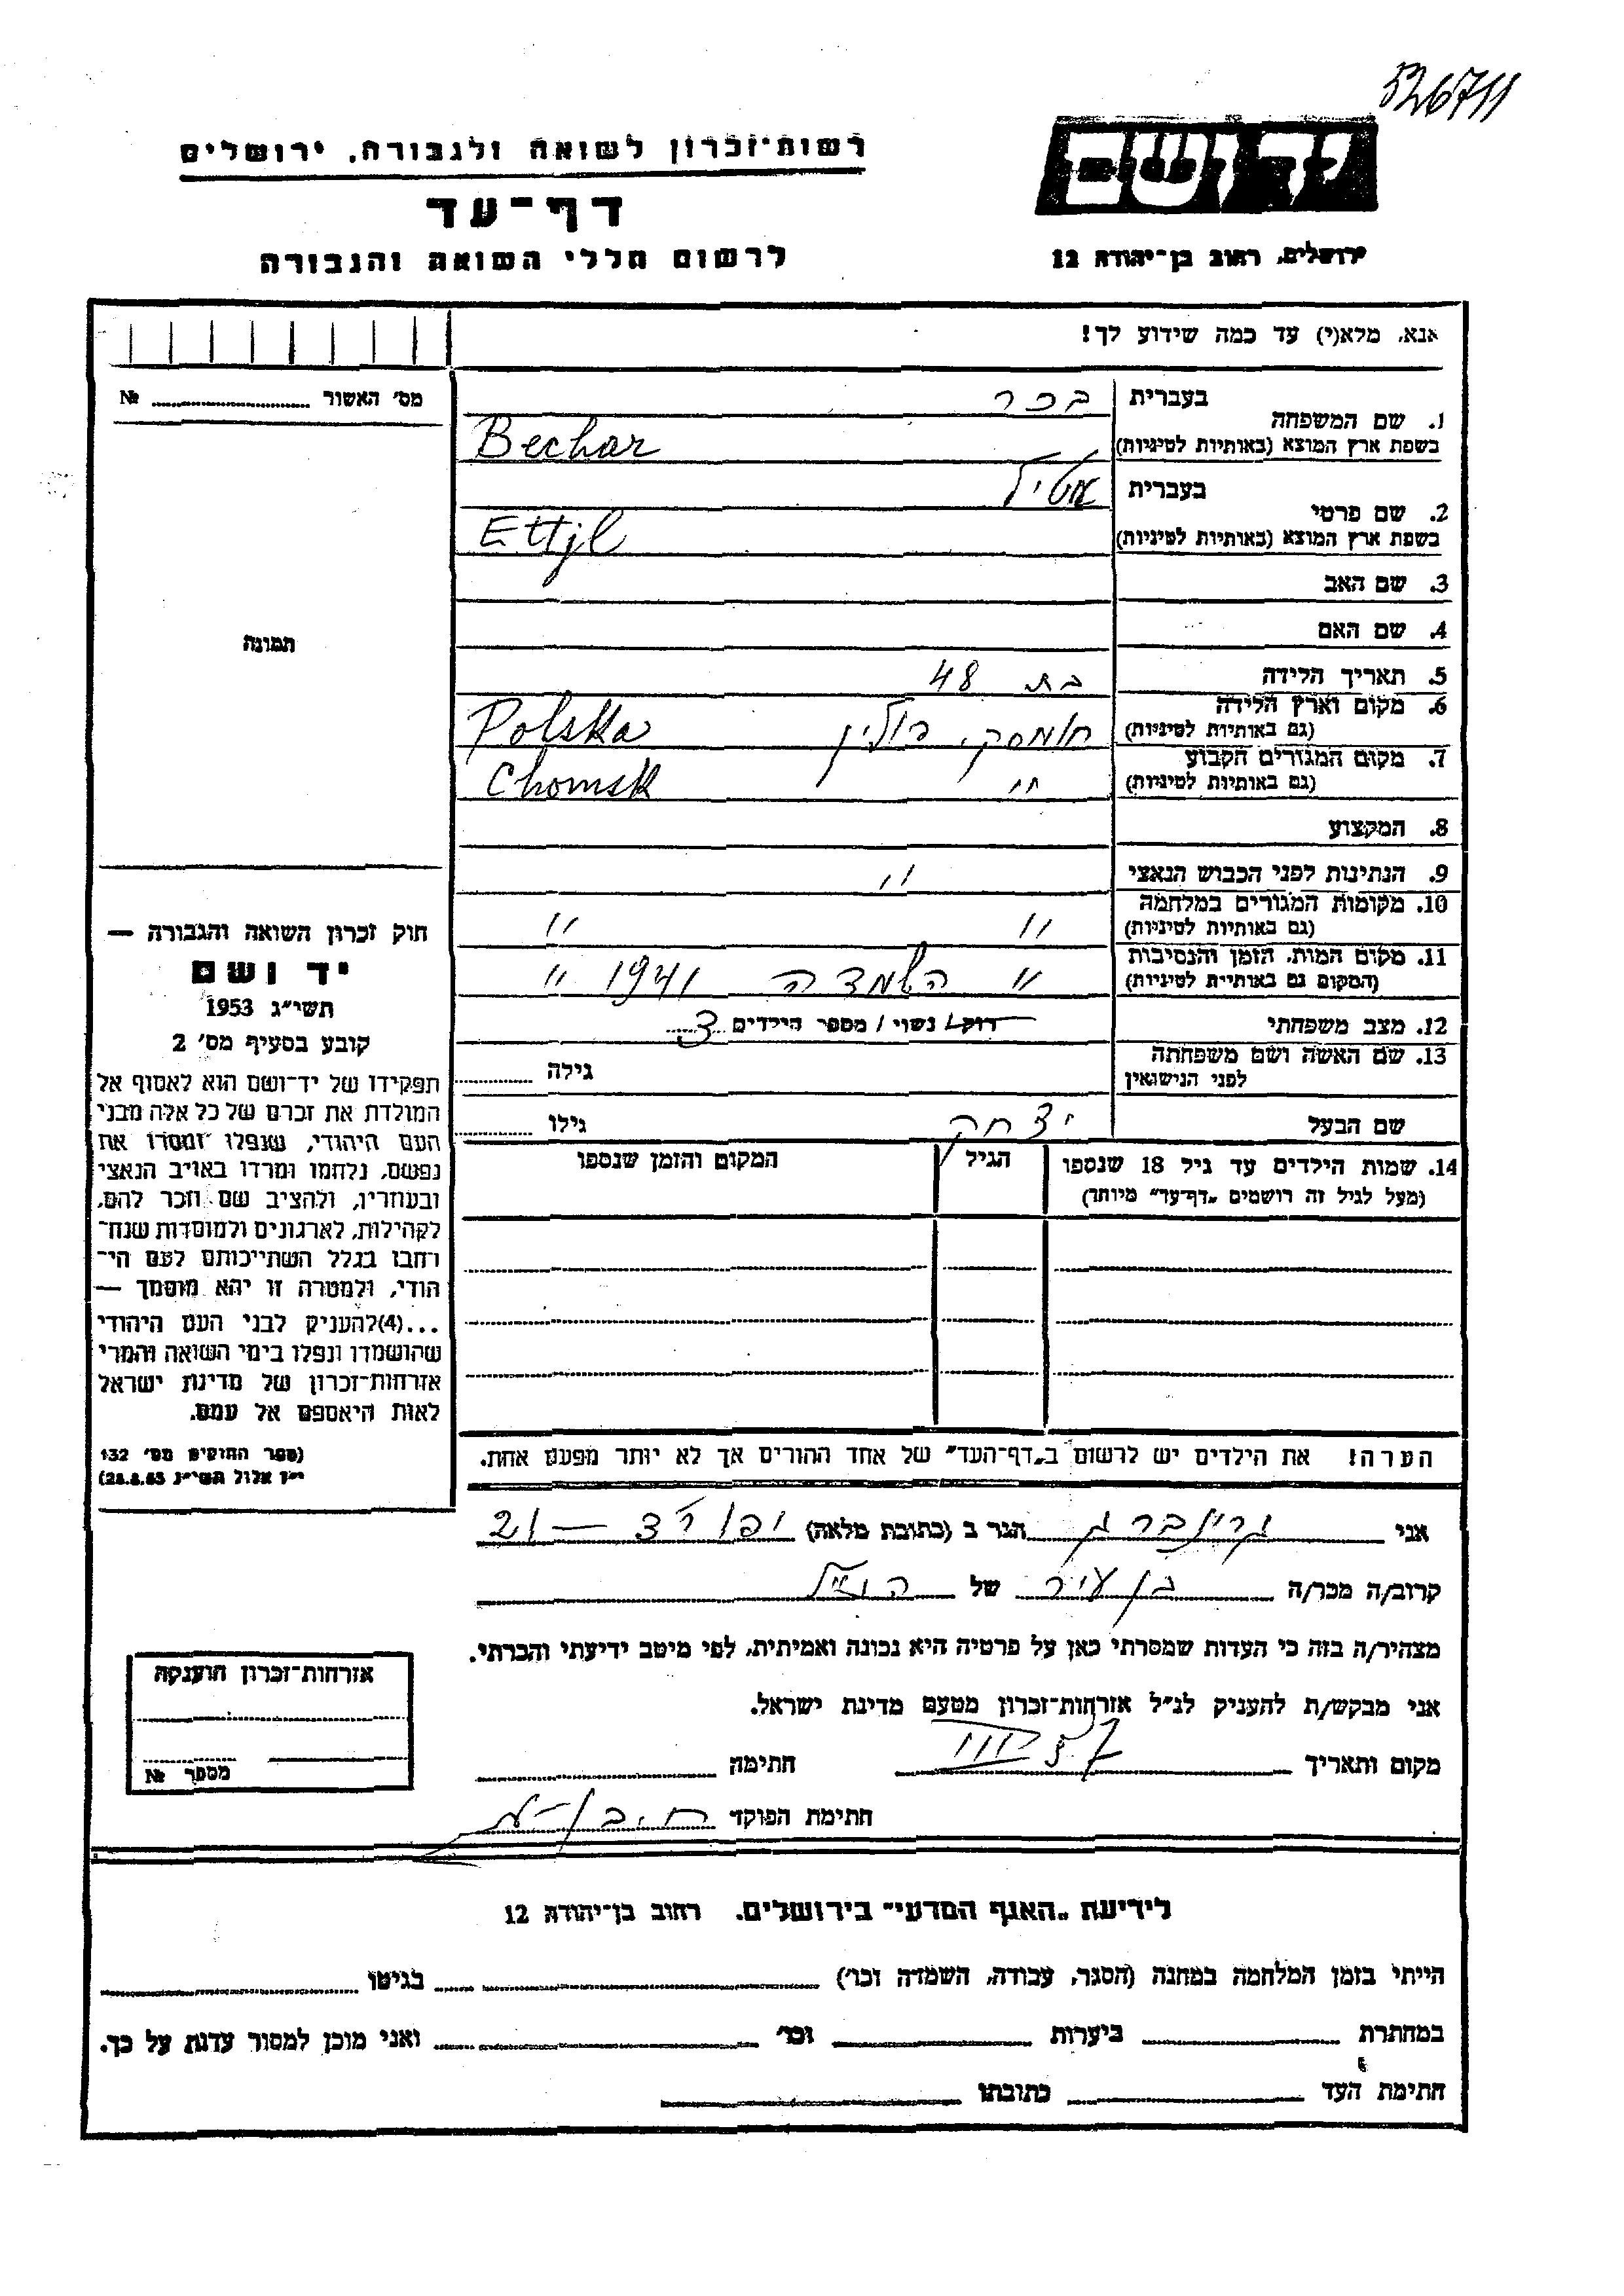 526711
יד ושם
ירושלים, רחוב בן־יהודה 12
רשות־זכרון לשואה ולגבורה, ירושלים
דף־עד
לרשום חללי השואה והגבורה
אנא, מלא(י) עד כמה שידוע לך!
מס׳ האשור № 
1. שם המשפחה
בעברית בכר
בשפת ארץ המוצא (באותיות לטיניות) Bechar
2. שם פרטי
בעברית אטיל
בשפת ארץ המוצא (באותיות לטיניות) Ettjl
3. שם האב
4. שם האם
תמונה
5. תאריך הלידה בת 48
6. מקום וארץ הלידה
(גם באותיות לטיניות) חומסק, פולין Polska
7. מקום המגורים הקבוע
(גם באותיות לטיניות) " Chomsk
8. המקצוע
9. הנתינות לפני הכבוש הנאצי "
10. מקומות המגורים במלחמה
(גם באותיות לטיניות) " "
11. מקום המות, הזמן והנסיבות
(המקום גם באותיות לטיניות) " השמדה 1941 "
12. מצב משפחתי רווק/ נשוי / מספר הילדים 3
13. שם האשה ושם משפחתה
לפני הנישואין גילה
שם הבעל יצחק גילו
14. שמות הילדים עד גיל 18 שנספו
(מעל לגיל זה רושמים „דף־עד" מיוחד)
הגיל
המקום והזמן שנספו
חוק זכרון השואה והגבורה —
יד ושם
תשי״ג 1953
קובע בסעיף מס׳ 2
תפקידו של יד־ושם הוא לאסוף אל
המולדת את זכרם של כל אלה מבני
העם היהודי, שנפלו ומסרו את
נפשם, נלחמו ומרדו באויב הנאצי
ובעוזריו, ולהציב שם וזכר להם,
לקהילות, לארגונים ולמוסדות שנח־
רבו בגלל השתייכותם לעם הי־
הודי, ולמטרה זו יהא מוסמך —
...(4)להעניק לבני העם היהודי
שהושמדו ונפלו בימי השואה והמרי
אזרחות־זכרון של מדינת ישראל
לאות היאספם אל עמם.
(ספר החוקים מס׳ 132
י״ז אלול תשי״ג 28.8.53)
הערה! את הילדים יש לרשום ב„דף־העד" של אחד ההורים אך לא יותר מפעם אחת.
אני גרינברג הגר ב (כתובת מלאה) 21 —
קרוב/ה מכר/ה בן עיר של הנ״ל
מצהיר/ה בזה כי העדות שמסרתי כאן על פרטיה היא נכונה ואמיתית, לפי מיטב ידיעתי והכרתי.
אני מבקש/ת להעניק לנ״ל אזרחות־זכרון מטעם מדינת ישראל.
מקום ותאריך III 57 חתימה
חתימת הפוקד
אזרחות־זכרון הוענקה
מספר №
לידיעת „האגף המדעי" בירושלים, רחוב בן־יהודה 12
הייתי בזמן המלחמה במחנה (הסגר, עבודה, השמדה וכו׳) בגיטו
במחתרת ביערות וכו׳ ואני מוכן למסור עדות על כך.
חתימת העד כתובתו